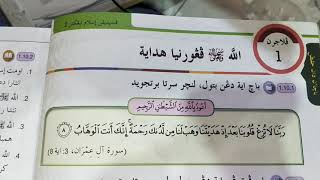 ڤنديديقن إسلام تيڠكتن 2
ڤلاجرن
1
الله ﷺ ڤڠورنيا هداية
1.10.1
باچ اية دڠن بتول، لنچر سرتا برتجويد
أَعُوذُ بِاللَّهِ مِنَ الشَّيْطَانِ الرَّجِيمِ
رَبَّنَا لَا تُزِغْ قُلُوبَنَا بَعْدَ إِذْ هَدَيْتَنَا وَهَبْ لَنَا مِن لَّدُنكَ رَحْمَةً إِنَّكَ أَنتَ الْوَهَّابُ ٨
(سورة آل عِمْرَان، 3: اية 8)
1.10.2